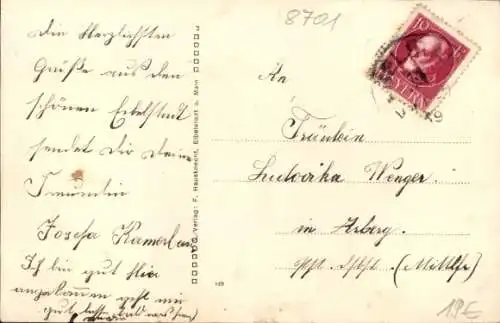 8701
Die Herzlichsten
Grüße aus den
schönen Eibelstadt
sendet Dir Deine
Freundin
Josefa
Ich bin gut hier
angekommen geht mir
gut
Verlag: F. Hausknecht, Eibelstadt a. Main
10
BAYERN
An
Fräulein
Ludovika Wenger
in Arberg
(Mittlfr)
19E